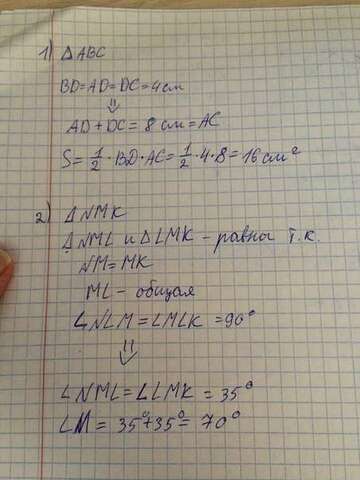 1) Δ ABC
BD=AD=DC=4см
⇓
AD+DC=8см=AC
S=1/2·BD·AC=1/2·4·8=16см²
2) ΔNMK
ΔNML и ΔLMK – равны т.к.
NM=MK
ML – общая
∠NLM=∠MLK=90°
⇓
∠NML=∠LMK=35°
∠M=35°+35°=70°